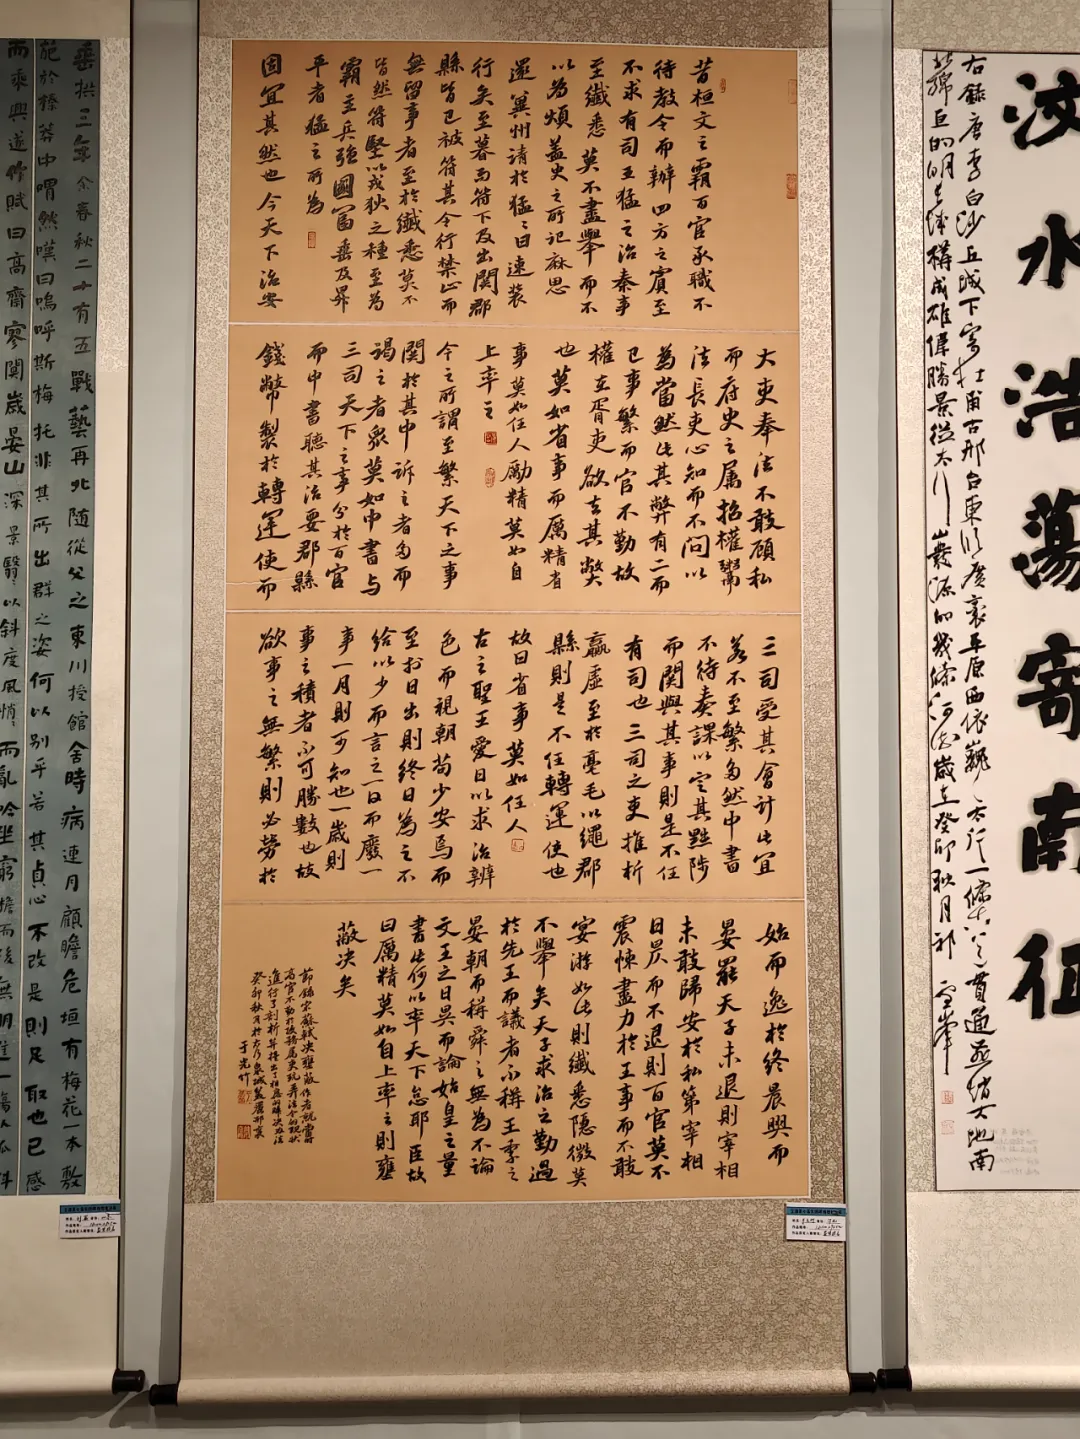 汶水浩蕩寄南征
右錄唐李白沙丘城下寄杜甫古邢台東臨廣袤平原西依巍〻太行一條古道貫通燕趙大地南
昔桓文之霸百官承職不
待教令而辦四方之賓至
不求有司王猛之治秦事
至纖悉莫不盡舉而不
以為煩蓋史之所記麻思
還冀州請於猛〻曰速裝
行矣至暮而符下及出関郡
縣皆已被符其令行禁止而
無留事者至於纖悉莫不
皆然符堅以戎狄之種至為
霸主兵強國富垂及昇
平者猛之所為
固宜其然也今天下治安
大吏奉法不敢顧私
而府史之属招權鬻
法長吏心知而不問以
為當然此其弊有二而
已事繁而官不勤故
權在胥吏欲去其弊
也莫如省事而厲精省
事莫如任人勵精莫如自
上率之
今之所謂至繁天下之事
関於其中訴之者多而
謁之者衆莫如中書与
三司天下之事分於百官
而中書聽其治要郡縣
錢幣製於轉運使而
三司受其會計此宜
若不至繁多然中書
不待奏課以定其黜陟
而関與其事則是不任
有司也三司之吏推析
贏虛至於毫毛以繩郡
縣則是不任轉運使也
故曰省事莫如任人
古之聖王愛日以求治辨
色而視朝苟少安焉而
至於日出則終日為之不
給以少而言之一日而廢一
事一月則可知也一歲則
事之積者不可勝數也故
欲事之無繁則必勞於
始而逸於終晨興而
晏罷天子未退則宰相
未敢歸安於私第宰相
日昃而不退則百官莫不
震悚盡力於王事而不敢
宴游如此則纖悉隱微莫
不舉矣天子求治之勤過
於先王而議者不稱王季之
晏朝而稱舜之無為不論
文王之日昃而論始皇之量
書此何以率天下怠耶臣故
曰厲精莫如自上率之則壅
蔽决矣
節錄宋蘇軾决壅蔽作者就當時
高官不勤於政務属吏玩弄法令的現狀
進行了剖析并提出了相應的解决办法
癸卯秋月於古
于光竹
垂拱三年余春秋二十有五戰藝再北随從父之東川授館舍時病連月顧瞻危垣有梅花一本敷
葩於榛莽中喟然嘆曰嗚呼斯梅托非其所出群之姿何以别乎若其貞心不改是則足取也已感
而乘興遂修賦曰高齋寥闃歲晏山深景翳〻以斜度風悄〻而亂吟坐窮檐而後無朋進一觴